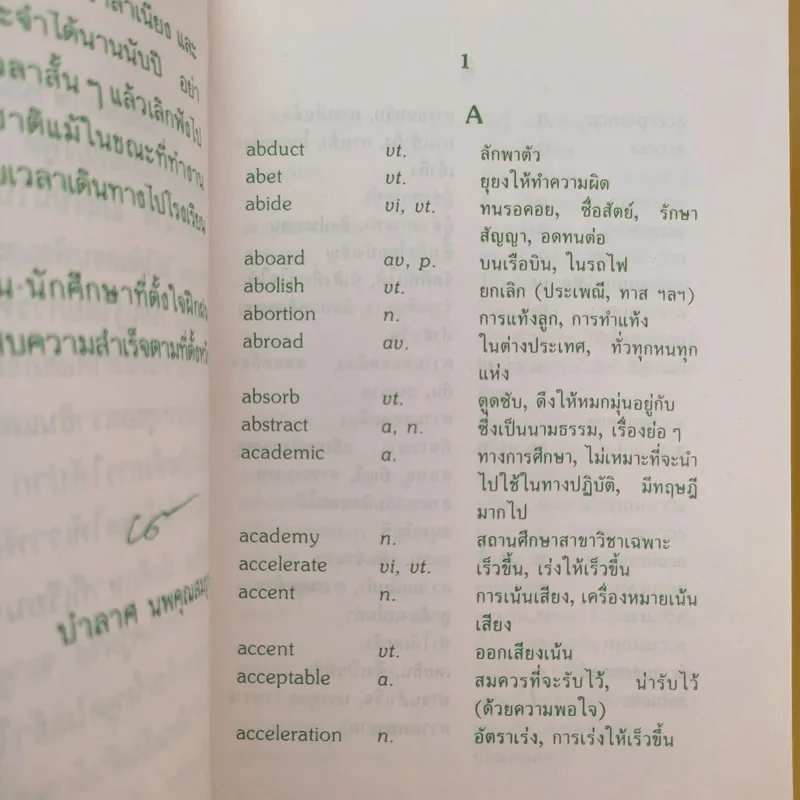 และ
จำได้นานนับปี อย่า
เวลาสั้น ๆ แล้วเลิกฟังไป
ชาติแม้ในขณะที่ทำงาน
เวลาเดินทางไปโรงเรียน
นักศึกษาที่ตั้งใจฝึก
ความสำเร็จตามที่ตั้ง
บำลาศ นพคุณ
1
A
abduct vt. ลักพาตัว
abet vt. ยุยงให้ทำความผิด
abide vi, vt. ทนรอคอย, ซื่อสัตย์, รักษา
สัญญา, อดทนต่อ
aboard av, p. บนเรือบิน, ในรถไฟ
abolish vt. ยกเลิก (ประเพณี, ทาส ฯลฯ)
abortion n. การแท้งลูก, การทำแท้ง
abroad av. ในต่างประเทศ, ทั่วทุกหนทุก
แห่ง
absorb vt. ดูดซับ, ดึงให้หมกมุ่นอยู่กับ
abstract a, n. ซึ่งเป็นนามธรรม, เรื่องย่อ ๆ
academic a. ทางการศึกษา, ไม่เหมาะที่จะนำ
ไปใช้ในทางปฏิบัติ, มีทฤษฎี
มากไป
academy n. สถานศึกษาสาขาวิชาเฉพาะ
accelerate vi, vt. เร็วขึ้น, เร่งให้เร็วขึ้น
accent n. การเน้นเสียง, เครื่องหมายเน้น
เสียง
accent vt. ออกเสียงเน้น
acceptable a. สมควรที่จะรับไว้, น่ารับไว้
(ด้วยความพอใจ)
acceleration n. อัตราเร่ง, การเร่งให้เร็วขึ้น